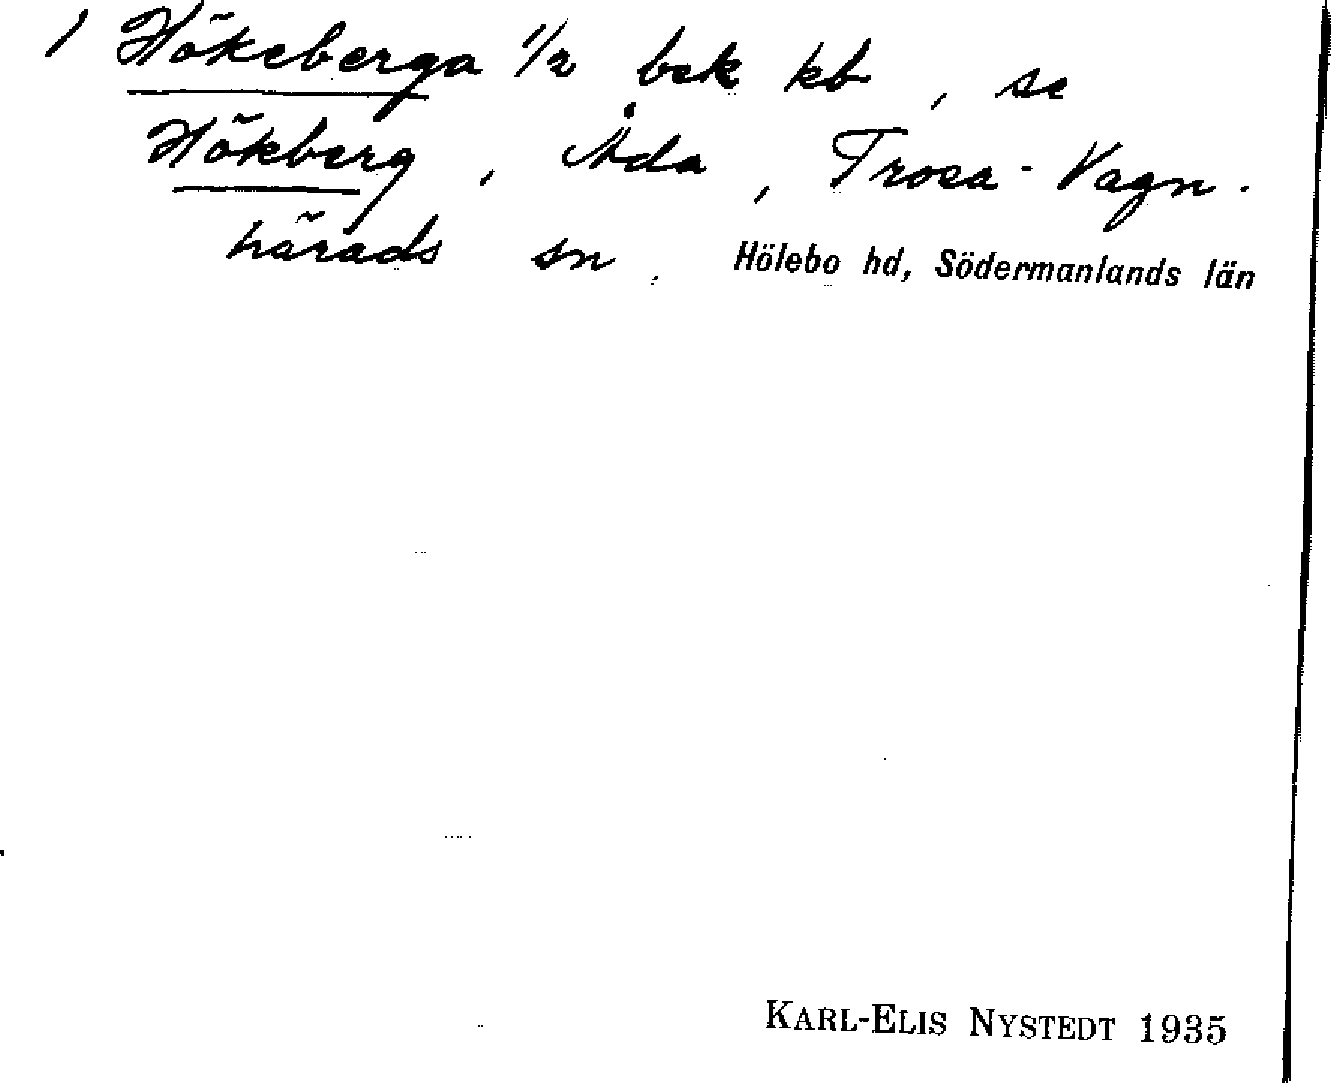 / Hökeberga 1/2 bek kb, se
Hökberg, Åda, Trosa-Vagn-
härads sn. Hölebo hd, Södermanlands län
KARL-ELIS NYSTEDT 1935